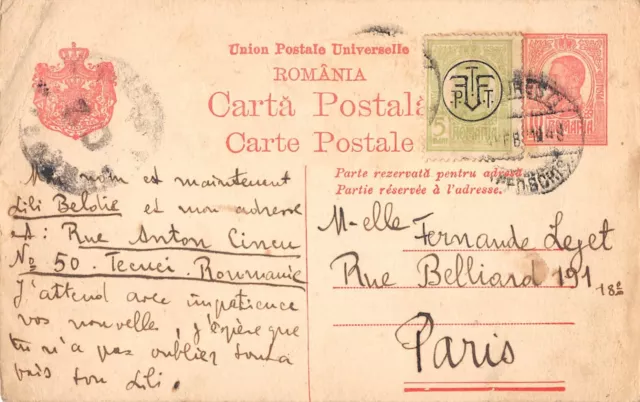 Union Postale Universelle
ROMÂNIA
Cartă Postală
Carte Postale
Parte rezervată pentru adresă
Partie réservée à l'adresse.
P. T. T.
5
ROMANIA
10
nom est maintenant
Lili Belotie et mon adresse
: Rue Anton Cincu
No 50. Tecuci. Roumanie
J'attend avec impatience
vos nouvelle, j'éspère que
tu n'a pas oublier
ton Lili.
M-elle Fernande Lejet
Rue Belliard 191
18e
Paris